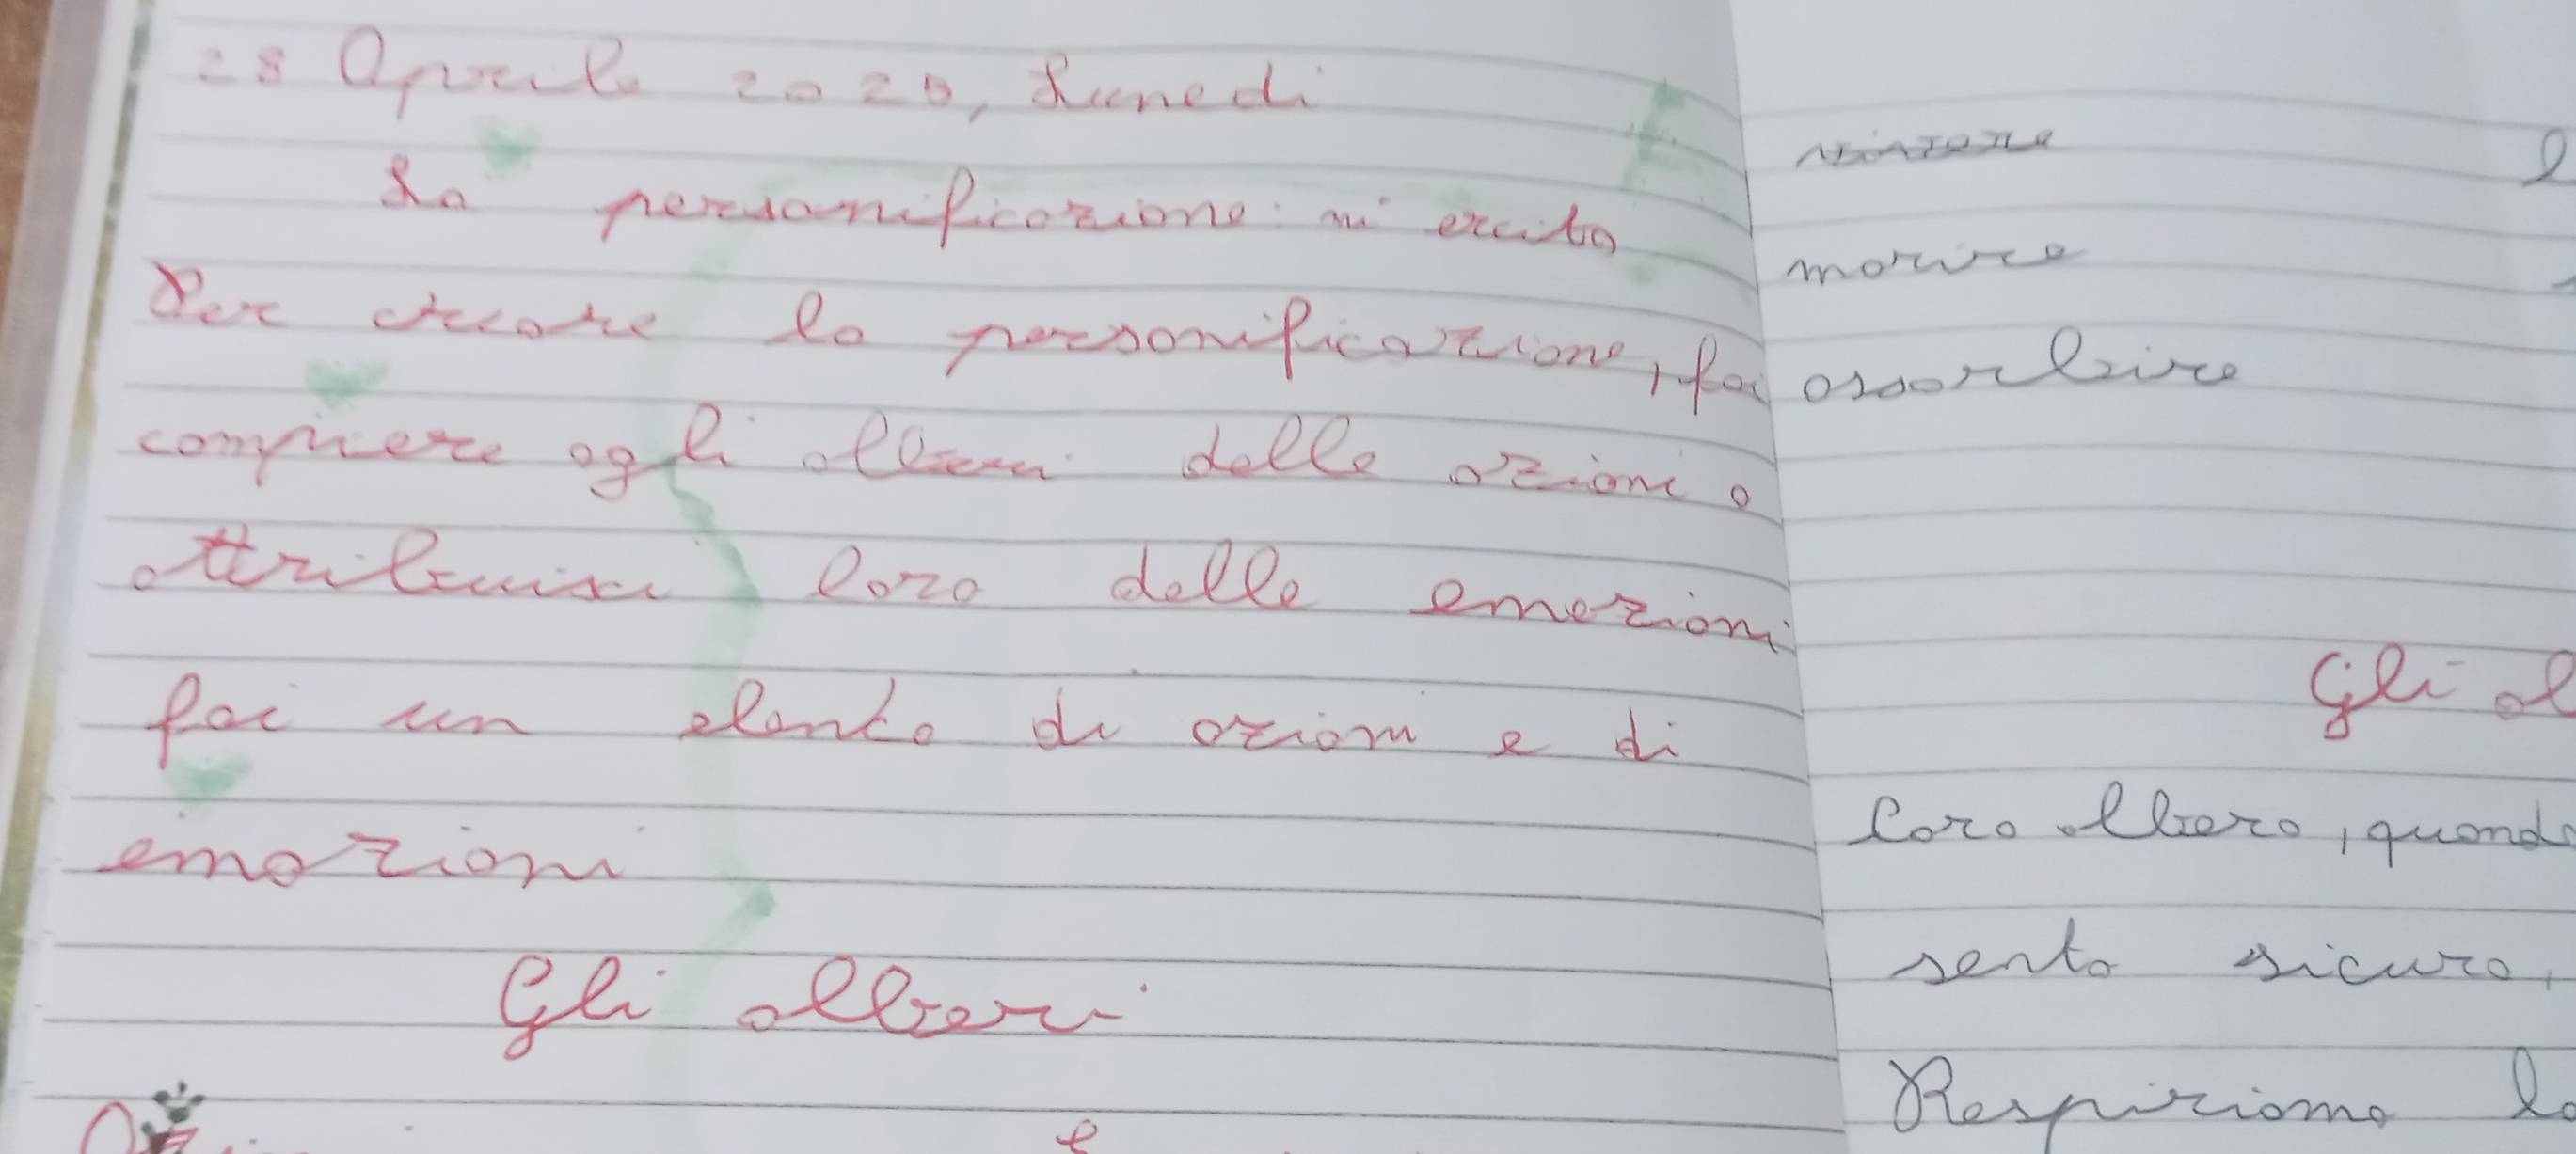 28 Aprile 2025, Lunedì
La personificazione: mi esercito
Per creare la personificazione, fai
compiere agli alberi delle azioni o
attribuisci loro delle emozioni
fai un elenco di azioni e di
emozioni
Gli alberi
morire
assorbire
Gli al
loro albero, quando
sento sicuro,
Respiriamo la